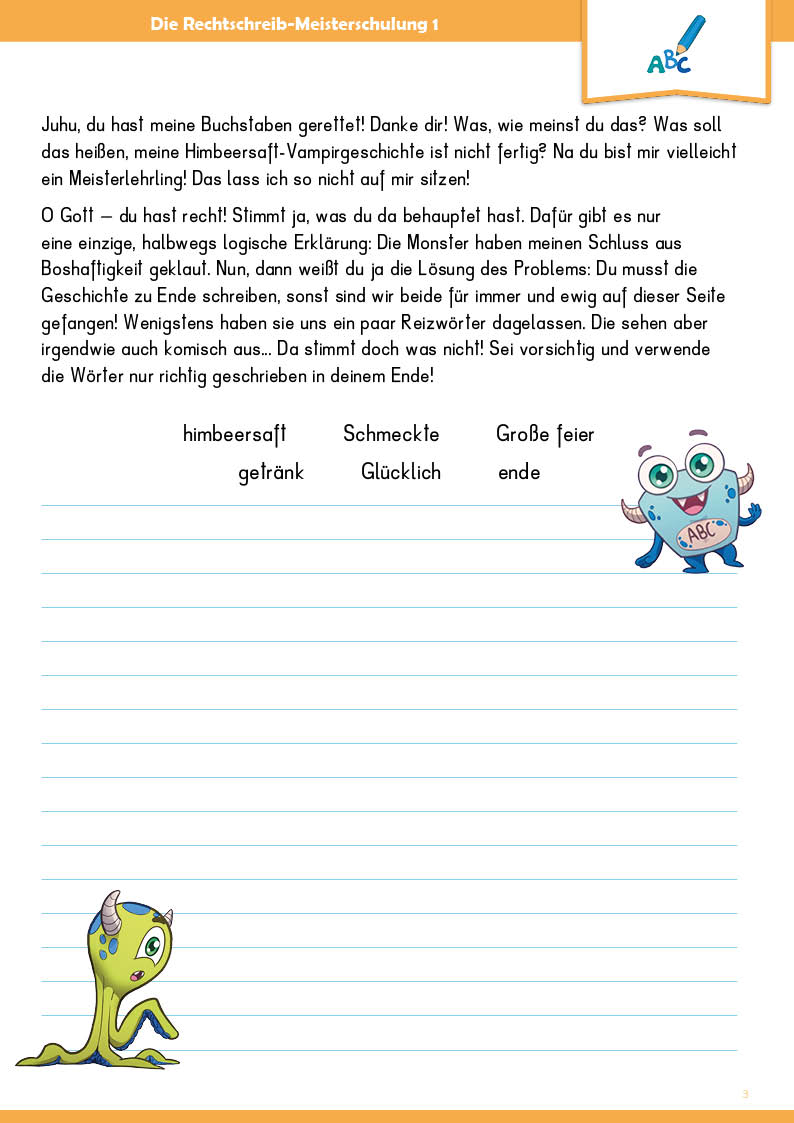 Die Rechtschreib-Meisterschulung 1
ABC
Juhu, du hast meine Buchstaben gerettet! Danke dir! Was, wie meinst du das? Was soll
das heißen, meine Himbeersaft-Vampirgeschichte ist nicht fertig? Na du bist mir vielleicht
ein Meisterlehrling! Das lass ich so nicht auf mir sitzen!
O Gott – du hast recht! Stimmt ja, was du da behauptet hast. Dafür gibt es nur
eine einzige, halbwegs logische Erklärung: Die Monster haben meinen Schluss aus
Boshaftigkeit geklaut. Nun, dann weißt du ja die Lösung des Problems: Du musst die
Geschichte zu Ende schreiben, sonst sind wir beide für immer und ewig auf dieser Seite
gefangen! Wenigstens haben sie uns ein paar Reizwörter dagelassen. Die sehen aber
irgendwie auch komisch aus... Da stimmt doch was nicht! Sei vorsichtig und verwende
die Wörter nur richtig geschrieben in deinem Ende!
himbeersaft Schmeckte Große feier
getränk Glücklich ende
ABC
3